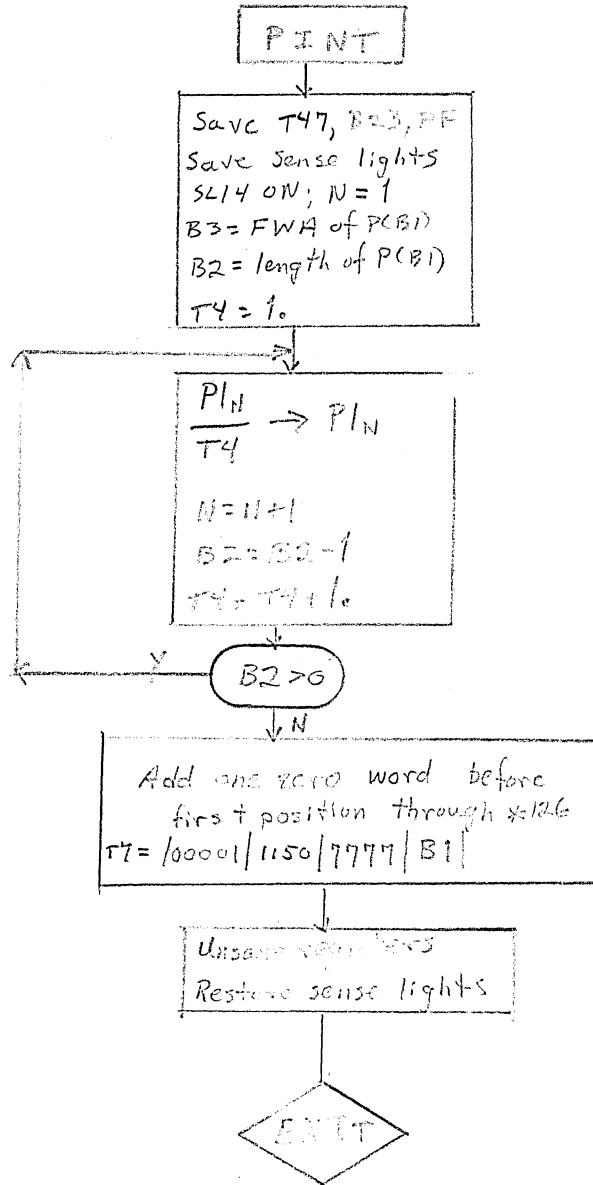 PINT
Save T47, B23, PF
Save sense lights
SL14 ON; N = 1
B3 = FWA of P(B1)
B2 = length of P(B1)
T4 = 1.
P1N
T4 → P1N
N = N+1
B2 = B2 - 1
T4 = T4 + 1.
Y
B2 > 0
N
Add one zero word before
first position through *126
T7 = /00001/1150/7777/B1/
Unsave registers
Restore sense lights
EXIT